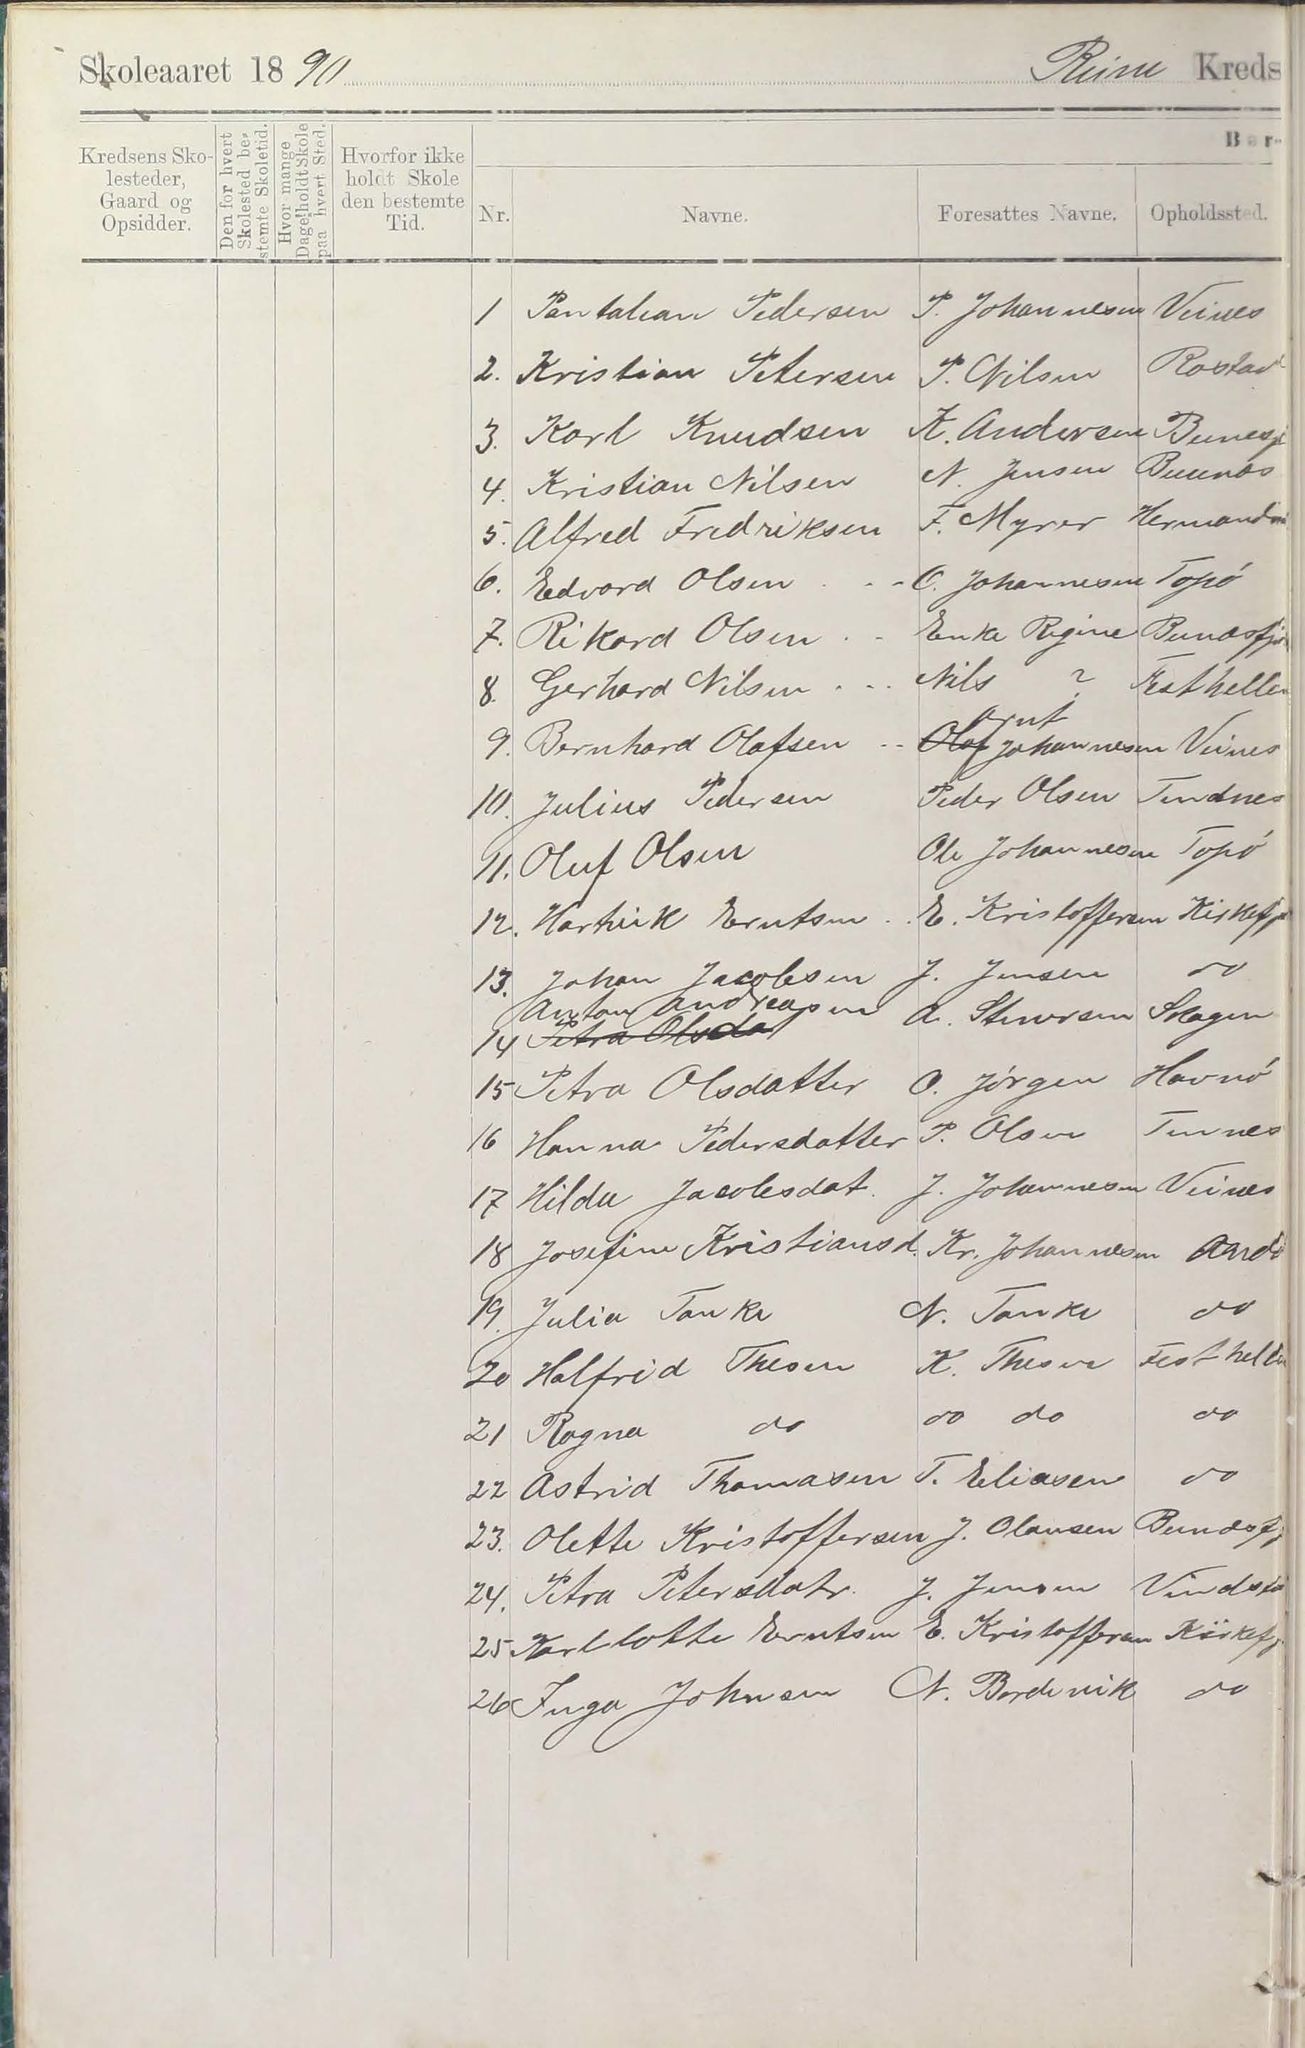 Skoleaaret 1890 Reine Kreds
Kredsens Skolesteder, Gaard og Opsidder.
Den for hvert Skolested bestemte Skoletid.
Hvor mange Dage holdt Skole paa hvert Sted.
Hvorfor ikke holdt Skole den bestemte Tid.
Bør-
Nr. Navne. Foresattes Navne. Opholdssted.
1 Pantalean Pedersen P. Johannesen Veines
2. Kristian Petersen P. Nilsen Rostad
3. Karl Knudsen K. Andersen Bunesfj
4. Kristian Nilsen N. Jensen Bunnes
5. Alfred Fredriksen F. Myrer Hermand
6. Edvard Olsen - - O. Johannesen Topø
7. Rikard Olsen - - Enke Regine Bundesfj
8. Gerhard Nilsen - - - Nils ? Festhellen
Arnt
9. Bernhard Olafsen - - Olaf Johannesen Veines
10. Julius Pedersen Peder Olsen Tindnes
11. Oluf Olsen Ole Johannesen Topø
12. Hartvik Erntsen - . E. Kristoffersen Kirkefj
13. Johan Jacobsen J. Jensen do
Anton Andreasen A. Stenersen Skagen
14 Petra Olsda
15 Petra Olsdatter O. Jørgen Havnø
16 Hanna Pedersdatter P. Olsen Tinnes
17 Hilda Jacobsdat. J. Johannesen Veines
18 Josefine Kristiansd. Kr. Johannesen
19. Julia Tanke N. Tanke do
20 Halfrid Thesen K. Thesen Festhellen
21 Ragna do do do do
22 Astrid Thomasen T. Eliasen do
23. Olette Kristoffersen J. Olausen Bundesfj
24. Petra Petersdatr. J. Jensen Vindsta
25 Karllotte Erntsen E. Kristoffersen Kirkefj
26 Inga Johnsen N. Bordevik do